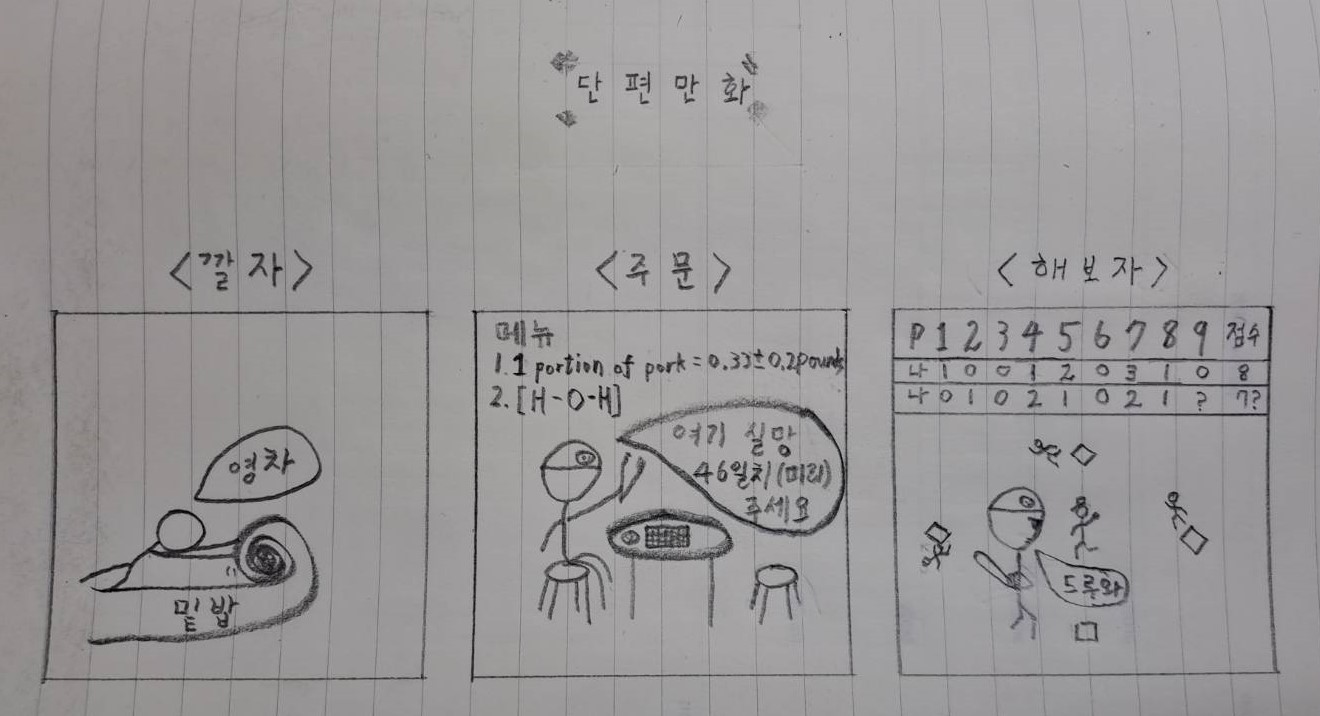 단 편 만 화
<깔 자>
영차
밑밥
<주 문>
메뉴
1. 1 portion of pork = 0.33±0.2pounds
2. [H-O-H]
여기 실망
46일치(미리)
주세요
<해 보 자>
P 1 2 3 4 5 6 7 8 9 점수
나 1 0 0 1 2 0 3 1 0 8
나 0 1 0 2 1 0 2 1 ? 7?
드루와